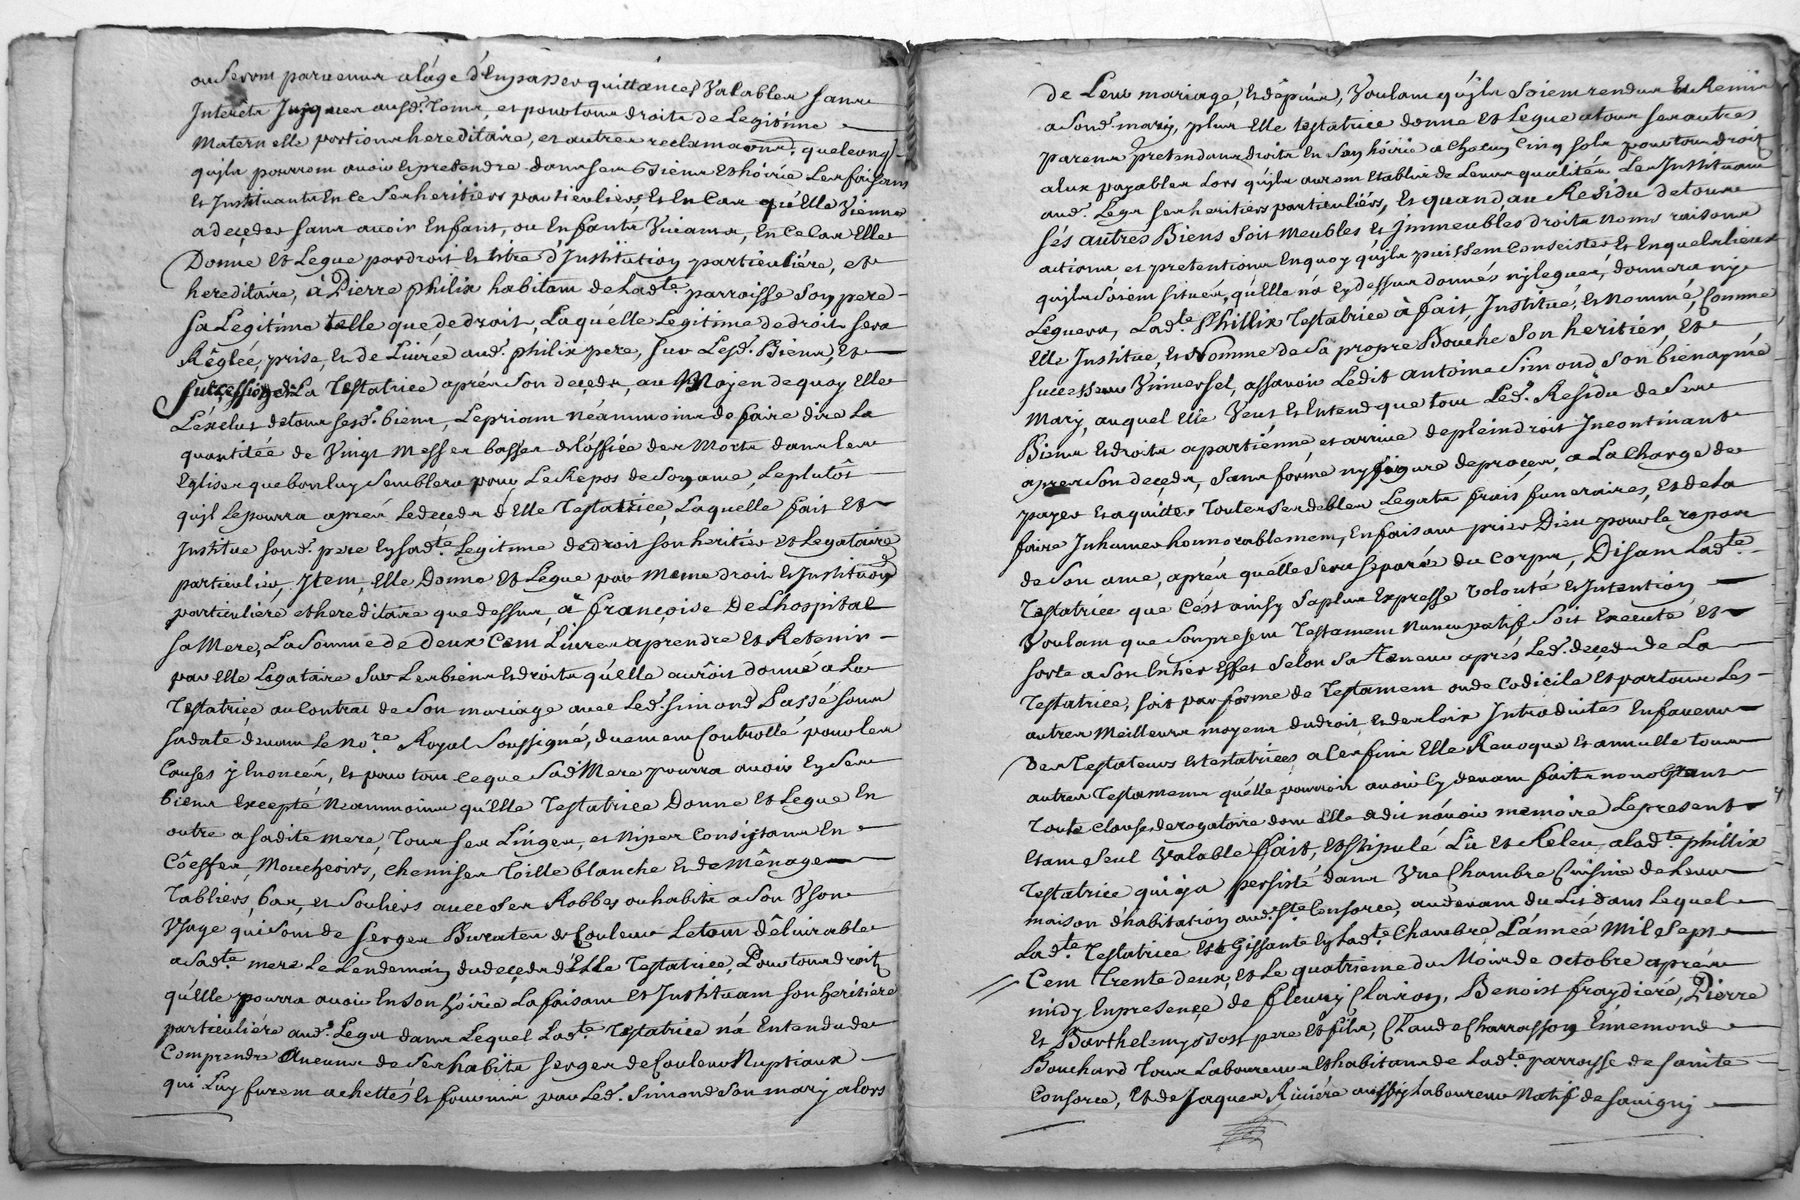 ou seront parvenus a lâge d'En passer quittances Valables sans
Interêts Jusques ausd. tems, et pour tous droits de Legitime
Maternelle portions hereditaire, et autres reclamaons, quelconq
quîls pourront avoir et pretendre dans ses Biens et hoirie Les faisans
Et Instituants En ce Ses heritiers particuliers, Et En Cas qu'Elle Vienne
a deçeder sans avoir Enfant, ou Enfants Vivants, En ce Cas Elle
Donne Et Legue par droit Et titre d'Institution particuliére, et
hereditaire, à Pierre philix habitant de Ladte. parroisse Son pere
sa Legitime telle que de droit, Laquélle Legitime de droit sera
Réglée, prise, Et de Livrée aud. philix pere, sur Lesd. Biens, Et
Succession de La Testatrice aprés Son deçeds, au Moyen de quoy Elle
L'éxclut de tous sesd. biens, Le priant Néammoins de faire dire La
quantitée de Vingt Messes basses de l'óffice des Morts dans Les
Eglises que bon luy Semblera pour Le Repos de Son ame, Le plutôt
quîl Le pourra aprés Le deçeds d'Elle Testatrice, Laquelle fait Et
Institue sond. pere En sadte. Legitime de droit son heritier Et Legataire
particulier, Item, Elle Donne Et Legue par Meme droit Et Institution
particuliére et hereditaire que dessus, à françoise De Lhospital
sa Mere, La Somme de deux Cent Livres a prendre Et Retenir
par Elle Legataire Sur Les biens Et droits qu'elle auroit donné a La
Testatrice au Contrat de Son mariage avec Led. Simond Passé sous
sa date devant Le Nore. Royal Soussigné, duement Controllé pour les
Causes y Enoncés, Et pour tout ce que Sad. Mere pourra avoir En Ses
biens Excepté Néammoins qu'Elle Testatrice Donne Et Legue En
outre a sadite mere, Tous Ses Linges, et Nipes Consistans En
Côeffes, Mouchoirs, chemises Toille blanche Et de Mênage
Tabliers, bas, et Souliers avec Ses Robbes ou habits a Son Vson
Vsage qui sont de serges Burates de Couleur Le tout dêlivrable
a Sadte. mere Le Lendemain du deçeds d'Elle Testatrice, Pour tous droits
qu'Elle pourra avoir En son hoirie La faisant Et Instituant son heritiére
particuliére aud. Legat dans Lequel Ladte. Testatrice n'á Entendu de
Comprendre Aucuns de Ses habits serges de Couleur Nuptiaux
qui Luy furent achettés Et fournis par Led. Simond Son mary alors
de Leur mariage, Et dépuis, Voulant quîls Soient rendus Et Remis
a Sond. mary, plus Elle testatrice donne Et Legue a tous ses autres
parens prétendans droits En Son hoirie a chacun Cinq sols pour tous droits
a Eux payables Lors quîls auront Etablis de Leurs qualités Les Instituant
aud. Legs Ses heritiers particuliérs, Et quand au Residu de tous
sés autres Biens Soit Meubles Et Immeubles droits Noms raisons
actions et pretentions En quoy quîls puissent Conseister Et En quels lieux
quîls Soient Situés, qu'Elle ná Cy dessus donnés ny legués, donnera ny
Leguera, Ladte. Phillix Testatrice à fait, Institué, Et Nommé, Comme
Elle Institue, Et Nomme de Sa propre Bouche Son heritier, Et
Successeur Vniversel, assavoir Ledit antoine Simond, Son bienaymé
Mary, auquel Elle Veut Et Entend que tout Led. Residu de Ses
Biens Et droits apartienne et arrive de plein droit Incontinant
apres Son deçeds, Sans forme ny figure de proces, a La Charge de
payer Et aquitter Toutes Ses debtes Legats frais funeraires, Et de La
faire Inhumer honnorablement, En faisant prier Dieu pour le repos
de Son ame, aprés quélle Sera Separée du Corps, Disant Ladte.
Testatrice que C'ést ainsy Sa plus Expresse Volonté Et Intention
Voulant que Son present Testament Nuncupatif Soit Executé Et
sorte a Son Entier Effet Selon Sa Teneur aprés Led. deçeds de La
Testatrice, Soit par forme de Testament ou de Codicile Et par tous Les
autres Meilleurs moyens du droit, Et des loix Introduites En faveur
Des Testateurs Et testatrices, a Ces fins Elle Revoque Et annulle tous
autres Testamens quélle pourroit avoir Cy devant faits nonobstant
Toute Clause derogatoire dont Elle a dit n'ávoir memoire Le present
Etant Seul Valable Fait, Et Stipulé Lû Et Releu, a Ladte. phillix
Testatrice qui y a persisté dans Vne Chambre Cuisine de Leur
maison d'habitation aud. Ste. Consorce, au devant du Lit dans Lequel
Ladte. Testatrice Est Gissante En Ladte. Chambre L'année Mil Sept
Cent Trente deux, Et Le quatrieme du Mois de octobre aprés
midy En presençe de fleury Clairon, Benoist fraydiére, Pierre
Et Barthelemy pere Et fils, Claude Charrasson Ennemond
Bouchard Tous Laboureurs Et habitans de Ladte. parroisse de sainte
Consorce, Et de Jaques Riviére aussy Laboureur Natif de savigny